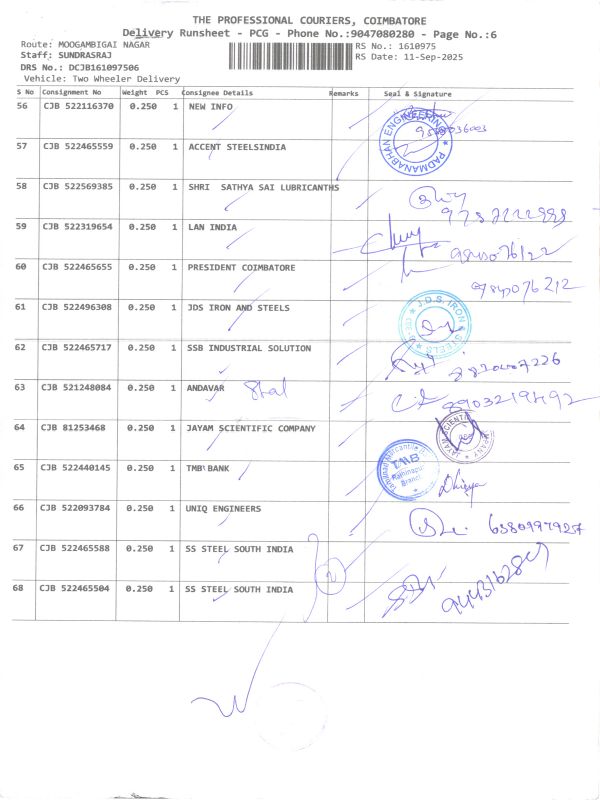 THE PROFESSIONAL COURIERS, COIMBATORE
Delivery Runsheet - PCG - Phone No.:9047080280 - Page No.:6
Route: MOOGAMBIGAI NAGAR RS No.: 1610975
Staff: SUNDRASRAJ RS Date: 11-Sep-2025
DRS No.: DCJB161097506
Vehicle: Two Wheeler Delivery
S No Consignment No Weight PCS Consignee Details Remarks Seal & Signature
56 CJB 522116370 0.250 1 NEW INFO
57 CJB 522465559 0.250 1 ACCENT STEELSINDIA
PADMANABHAN ENGINEERING
58 CJB 522569385 0.250 1 SHRI SATHYA SAI LUBRICANTHS
59 CJB 522319654 0.250 1 LAN INDIA
60 CJB 522465655 0.250 1 PRESIDENT COIMBATORE
61 CJB 522496308 0.250 1 JDS IRON AND STEELS
J.D.S. IRON STEELS
62 CJB 522465717 0.250 1 SSB INDUSTRIAL SOLUTION
63 CJB 521248084 0.250 1 ANDAVAR
64 CJB 81253468 0.250 1 JAYAM SCIENTIFIC COMPANY
JAYAM SCIENTIFIC
65 CJB 522440145 0.250 1 TMB BANK
TMB
Branch
66 CJB 522093784 0.250 1 UNIQ ENGINEERS
6380997927
67 CJB 522465588 0.250 1 SS STEEL SOUTH INDIA
2
68 CJB 522465504 0.250 1 SS STEEL SOUTH INDIA